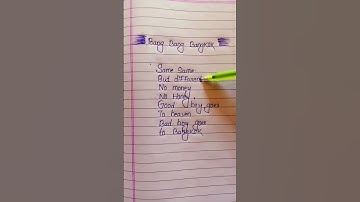 Bang Bang Bangkok
Same Same
But different
No money
No Honey
Good boy goes
To heaven
Bad boy goes
to Bangkok